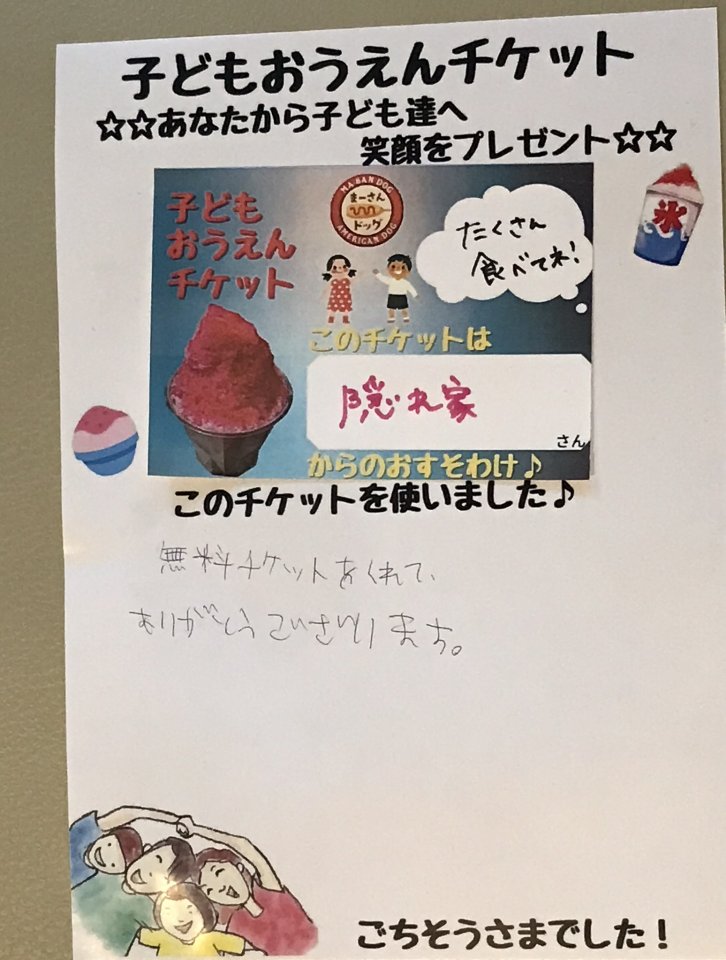 子どもおうえんチケット
☆☆あなたから子ども達へ
笑顔をプレゼント☆☆
氷
子ども
おうえん
チケット
MA SAN DOG
まーさん
ドッグ
AMERICAN DOG
たくさん
食べてネ!
このチケットは
隠れ家
さん
からのおすそわけ♪
このチケットを使いました♪
無料チケットをくれて、
ありがとうございます。
ごちそうさまでした!